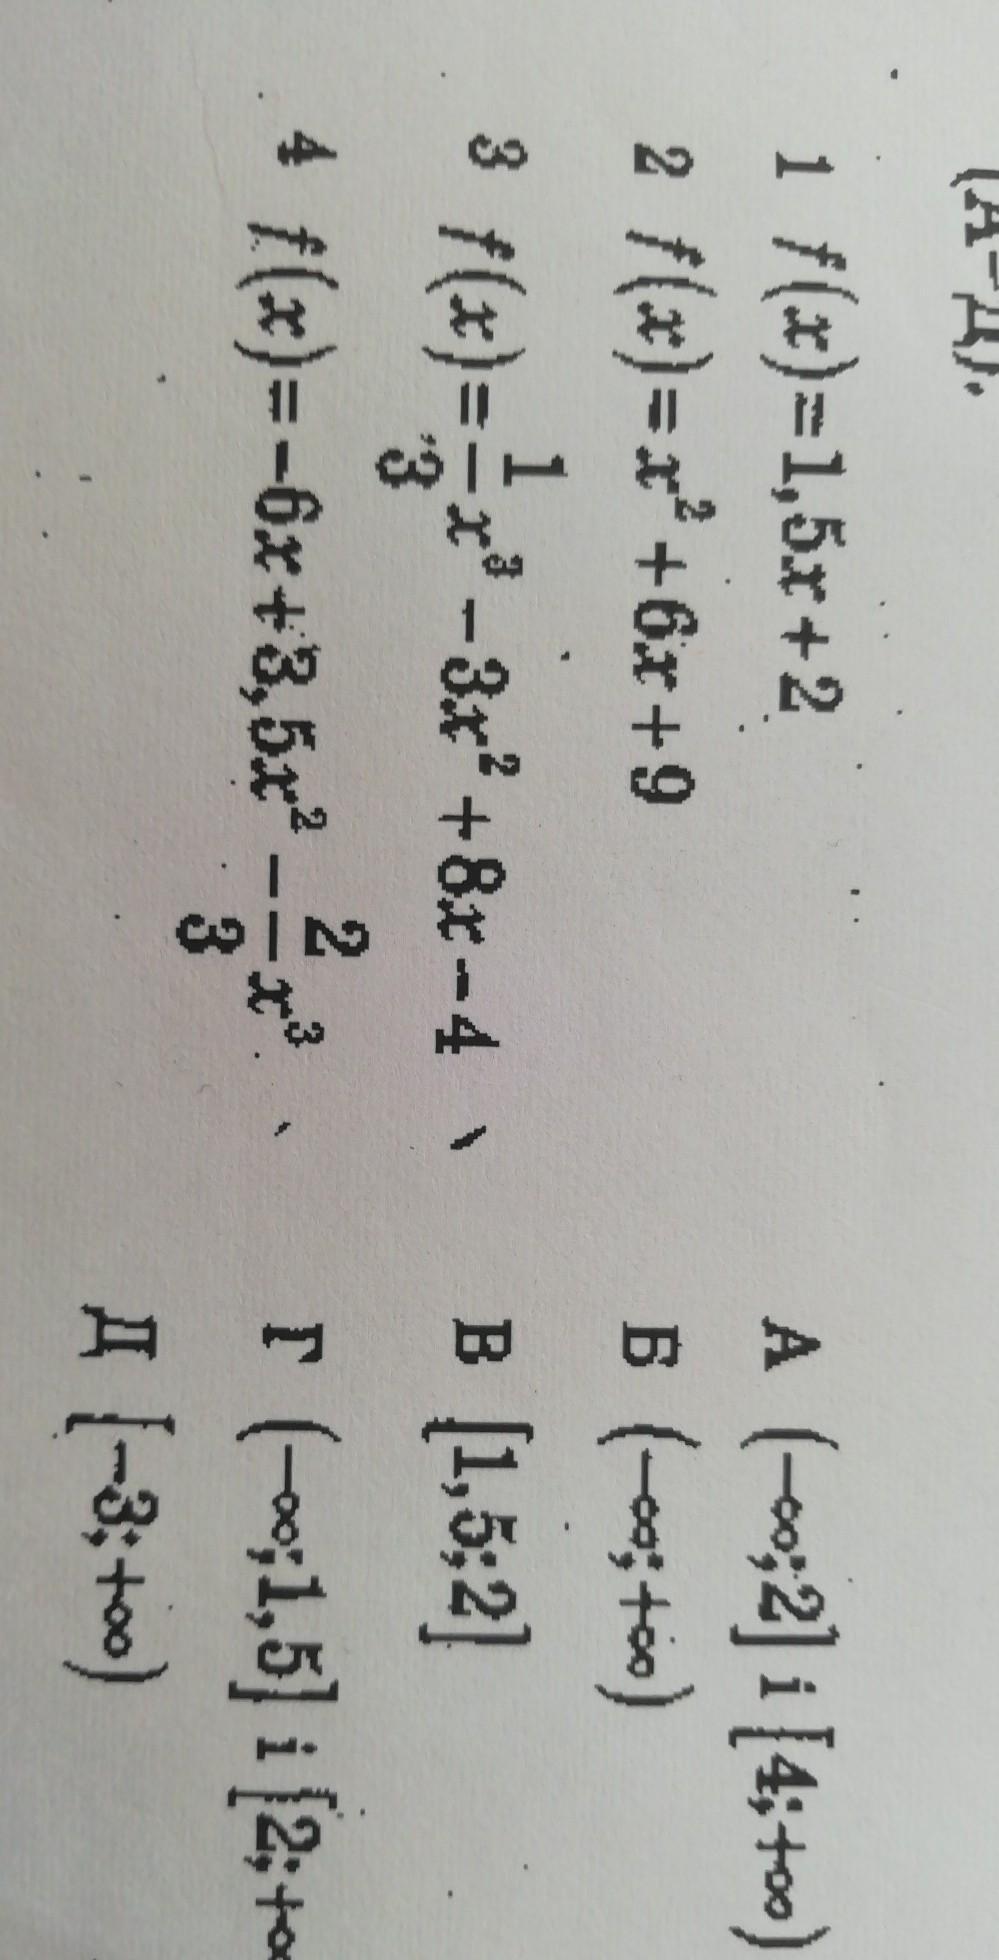 (А–Д).
1 f(x)=1,5x+2
2 f(x)=x²+6x+9
3 f(x)=1/3x³−3x²+8x−4
4 f(x)=−6x+3,5x²−2/3x³
А (−∞;2] і [4;+∞)
Б (−∞;+∞)
В [1,5;2]
Г (−∞;1,5] і [2;+∞
Д [−3;+∞)